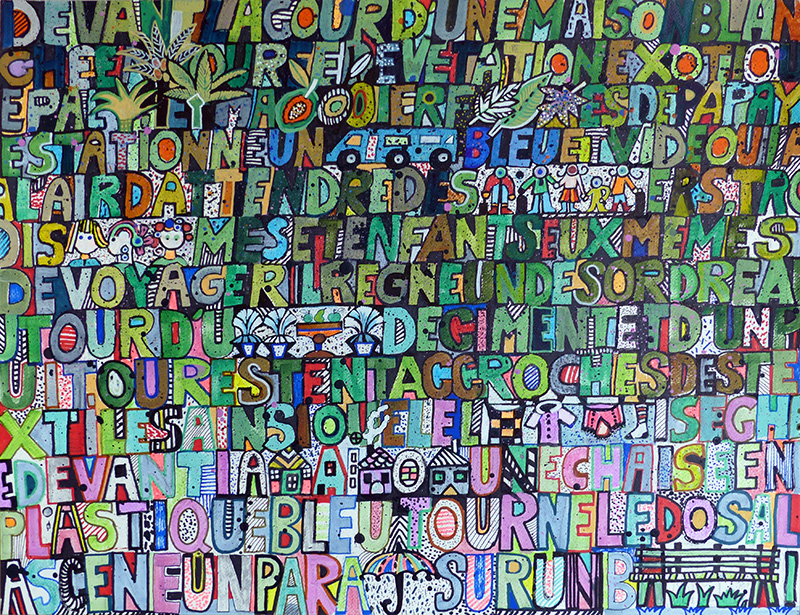 DEVANTLACOURDUNEMAISONBLAN
CHEET OUREEDEVE TATIONEXOTIQ
EPA ESDEPAPAY
ESTATIONNEUN BLEUETVIDEQUIA
LAIRDATTENDREDES ERSTRO
DIS MESETENFANTSEUXMEMES
DEVOYAGERILREGNEUNDESORDREA
UTOURDU DECIMENTETDUNP
UITOURESTENTACCROCHESDESTE
XTILESAINSIQUELEL ISEGHE
EDEVANTLA UNECHAISEEN
PLASTIQUEBLEUTOURNELEDOSAL
ASCENEUNPARA SURUNB